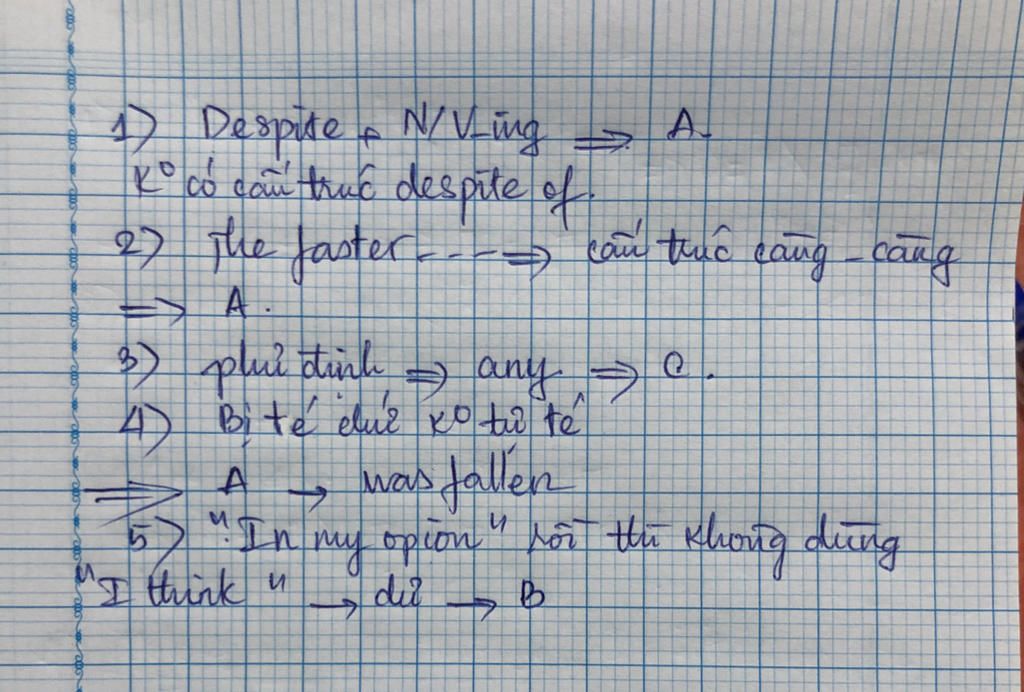 1) Despite + N/V-ing => A.
K° có cấu trúc despite of.
2) The faster --- => cấu trúc càng - càng
=> A.
3) phủ định => any => C.
4) Bị té chứ k° tử tế
=> A → was fallen
5) "In my opion" rồi thì không dùng
"I think" → dư → B